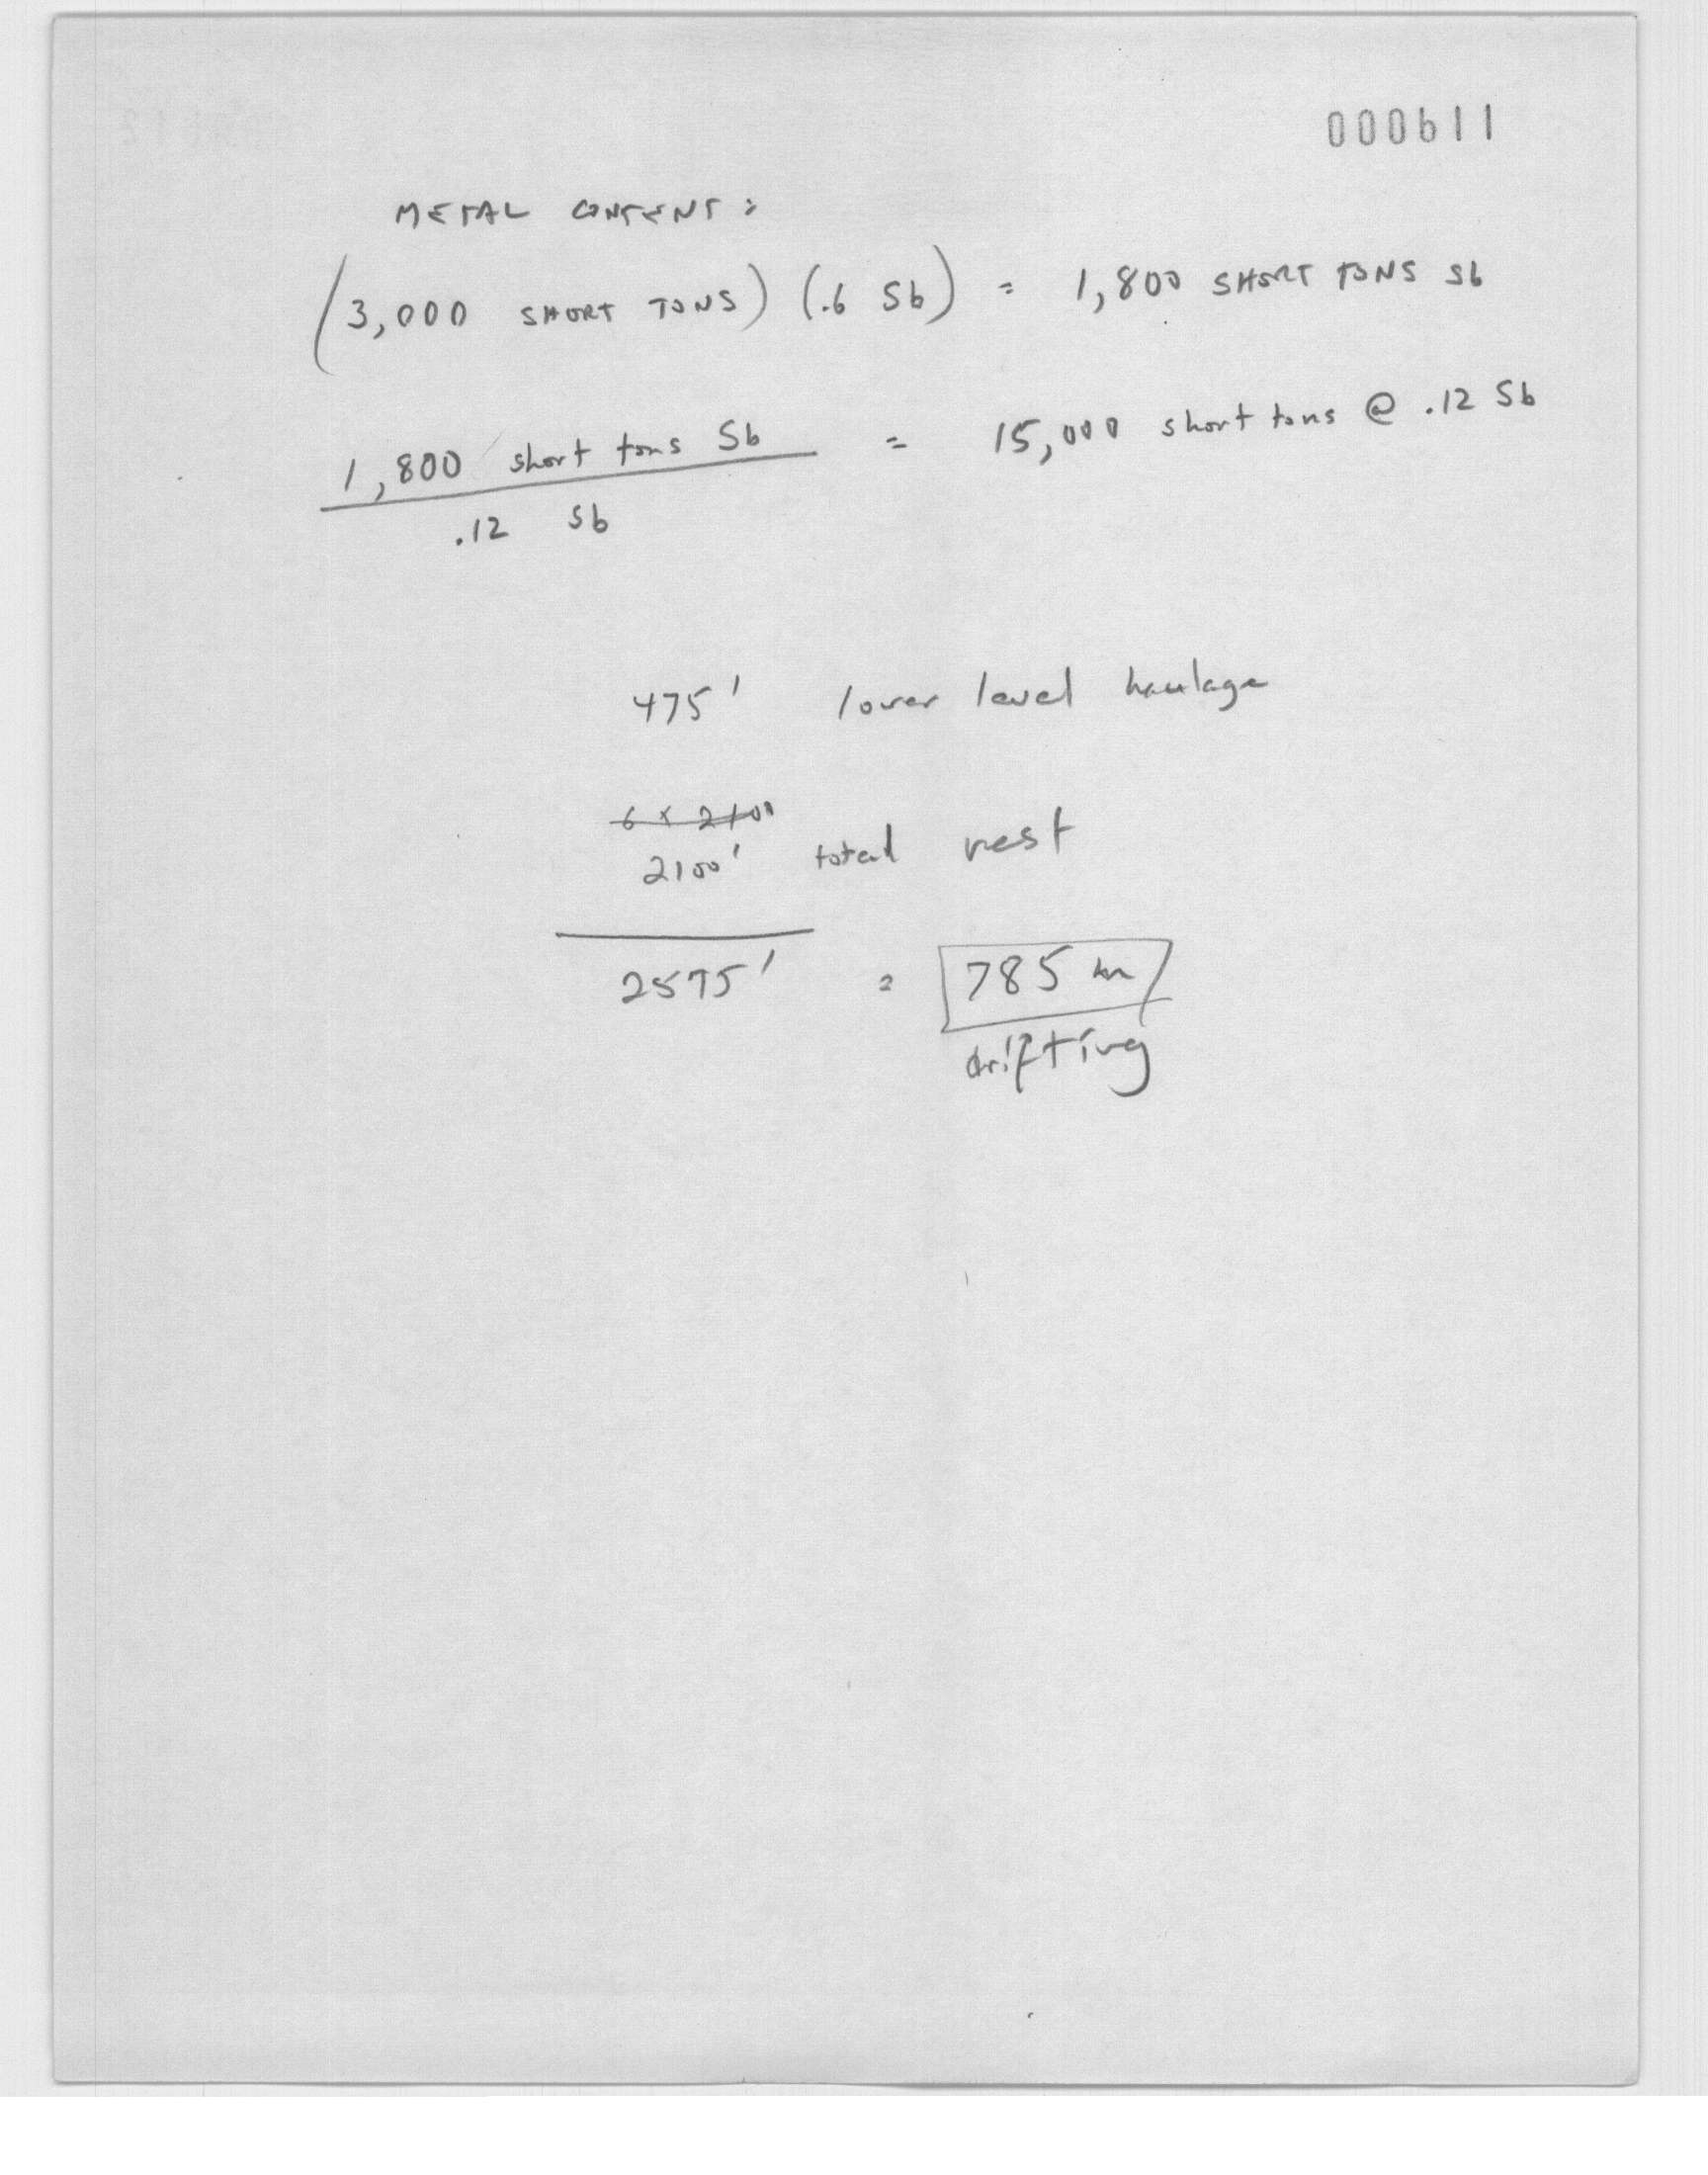 000611
METAL CONTENT:
(3,000 SHORT TONS) (.6 Sb) = 1,800 SHORT TONS Sb
1,800 short tons Sb = 15,000 short tons @ .12 Sb
.12 Sb
475' lower level haulage
6 x 2100
2100' total rest
2575' = 785 m
drifting